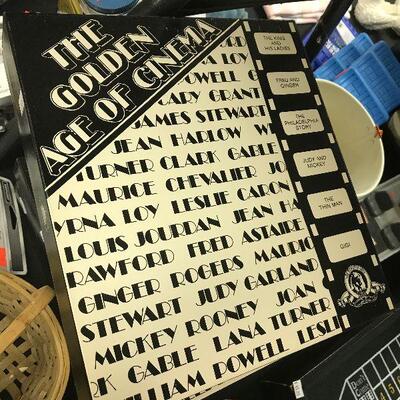 THE
GOLDEN
AGE OF CINEMA
THE KING
AND
HIS LADIES
FRED AND
GINGER
THE
PHILADELPHIA
STORY
JUDY AND
MICKEY
THE
THIN MAN
GIGI
LOY
POWELL
CARY GRANT
JAMES STEWART
JEAN HARLOW
TURNER CLARK GABLE
MAURICE CHEVALIER JO
YRNA LOY LESLIE CARON
LOUIS JOURDAN JEAN HA
RAWFORD FRED ASTAIRE
GINGER ROGERS MAURIC
STEWART JUDY GARLAND
MICKEY ROONEY JOAN
RK GABLE LANA TURNER
WILLIAM POWELL LESLI